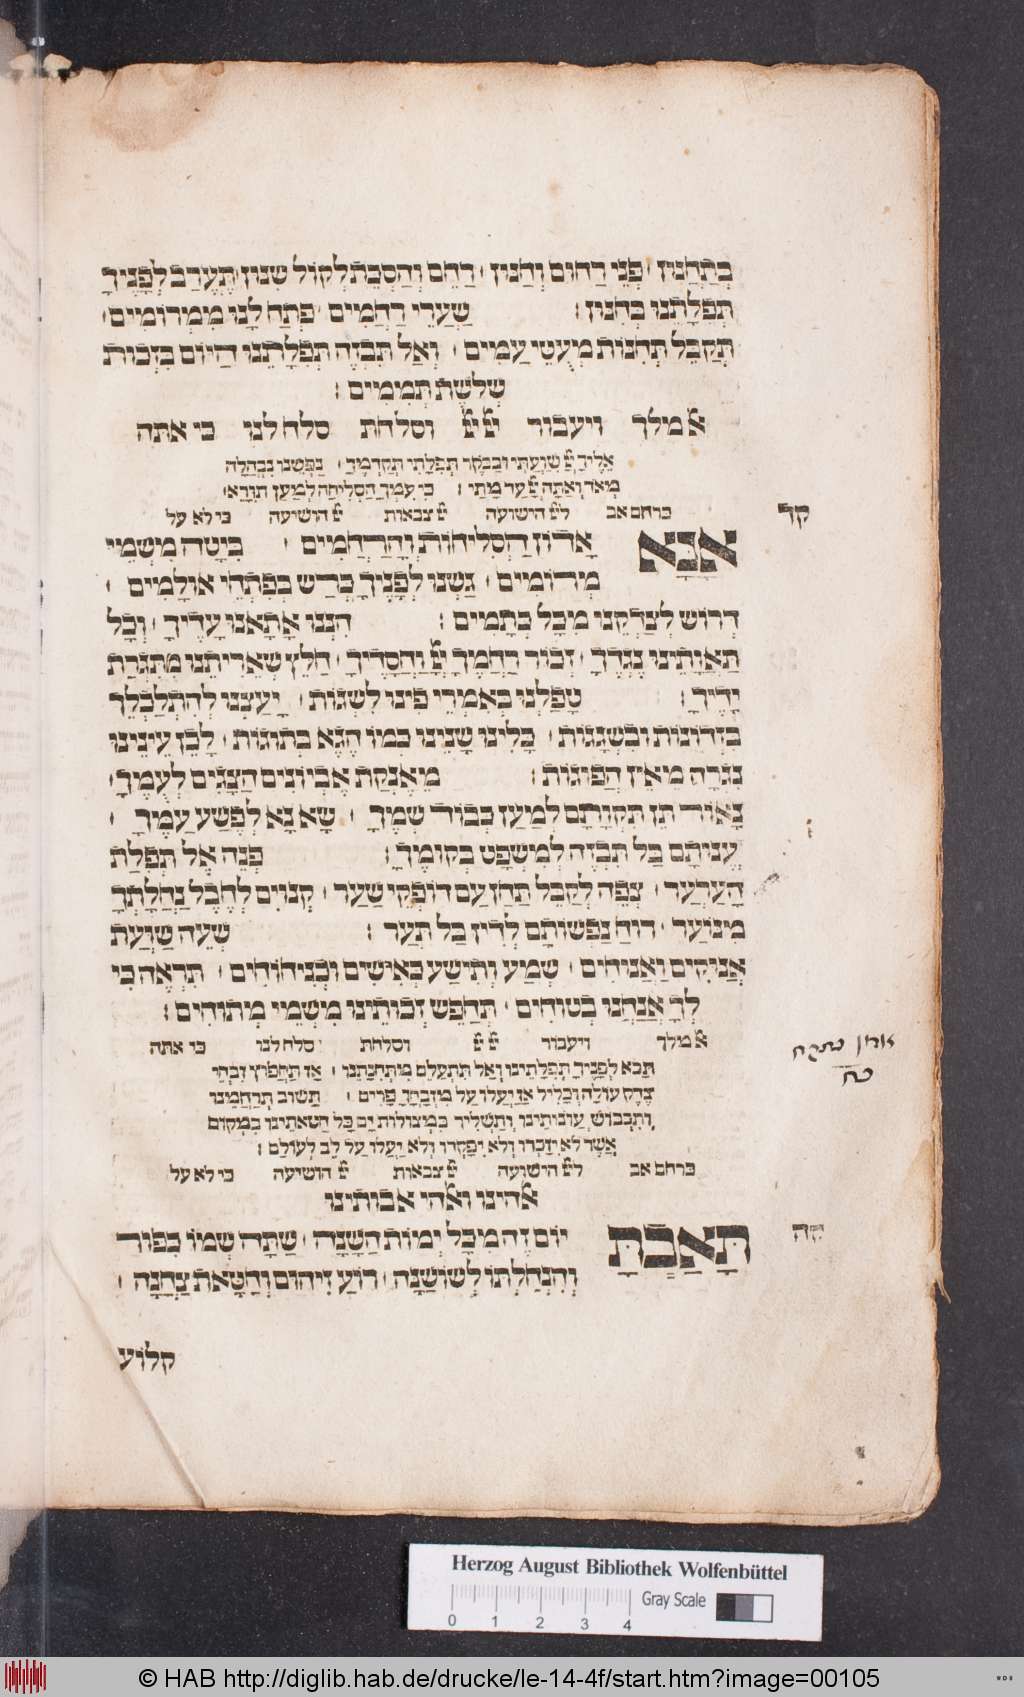 בְּתַחֲנוּן׳ פְּנֵי רַחוּם וְחַנּוּן׳ רַחֵם וְהַסְכֵּת לְקוֹל שִׁנּוּן׳ תֶּעֱרַב לְפָנֶיךָ
תְּפִלָּתֵנוּ כְּחִנּוּן: שַׁעֲרֵי רַחֲמִים׳ פְּתַח לָנוּ מִמְּרוֹמִים׳
תְּקַבֵּל תְּחִנּוֹת מְעוּטֵי עַמִּים׳ וְאַל תִּבְזֶה תְּפִלָּתֵנוּ הַיּוֹם בִּזְכוּת
שְׁלֹשֶׁת תְּמִימִים:
אל מלך ויעבור יי יי וסלחת סלח לנו כי אתה
אֵלֶיךָ יי שִׁוַּעְתִּי וּבַבֹּקֶר תְּפִלָּתִי תְקַדְּמֶךָּ׳ נַפְשֵׁנוּ נִבְהֲלָה
מְאֹד וְאַתָּה יי עַד מָתַי: כִּי עִמְּךָ הַסְּלִיחָה לְמַעַן תִּוָּרֵא׳
קד כרחם אב ליי הישועה יי צבאות יי הושיעה כי לא על
אָבָּא אֲדוֹן הַסְּלִיחוֹת וְהָרַחֲמִים׳ בִּיטָה מִשְּׁמֵי
מְרוֹמִים׳ גַּשְׁנוּ לְפָנֶיךָ כְּרַשׁ בְּפִתְחֵי אוּלַמִּים׳
דְּרוֹשׁ לְצַדְּקֵנוּ מִכָּל כְּתָמִים: הִנְנוּ אָתָאנוּ עָדֶיךָ׳ וְכָל
תַּאֲוָתֵינוּ נֶגְדֶּךָ׳ זְכוֹר רַחֲמֶךָ יי וַחֲסָדֶיךָ׳ חַלֵּץ שְׁאֵרִיתֵנוּ מִתִּגְרַת
יָדֶיךָ: טָפַלְנוּ בְּאִמְרֵי פִינוּ לִשְׁגּוֹת׳ יָעַצְנוּ לְהִתְלַכְלֵךְ
בִּזְדוֹנוֹת וּבִשְׁגָגוֹת׳ כָּלִינוּ שָׁנֵינוּ כְּמוֹ הֶגֶא בְּתוּגוֹת׳ לָכֵן עֵינֵינוּ
נִגְּרָה מֵאֵין הֲפוּגוֹת: מֵאֶנְקַת אֶבְיוֹנִים הַצָּגִים לְעֻמֶּךָ׳
נָאוֹר תֵּן תִּקְוָתָם לְמַעַן כְּבוֹד שְׁמֶךָ׳ שָׂא נָא לְפֶשַׁע עַמֶּךָ׳
עֱנוּתָם בַּל תִּבְזֶה לְמִשְׁפָּט בְּקוּמֶךָ: פְּנֵה אֶל תְּפִלַּת
הָעַרְעָר׳ צְפֵה לְקַבֵּל תַּחַן עַם דּוֹפְקֵי שַׁעַר׳ קְנוּיִם לְחֶבֶל נַחֲלָתְךָ
מִנּוֹעַר׳ רוּחַ נַפְשׁוֹתָם לְרִיק בַּל תְּעַר: שְׁעֵה שַׁוְעַת
אֲנוּקִים וַאֲנוּחִים׳ שְׁמַע וְתִישַׁע בְּאִישִׁים וּבְנִיחוֹחִים׳ תִּרְאֶה כִּי
לְךָ אֲנַחְנוּ בְּטוּחִים׳ תְּחַפֵּשׂ זְכוּתֵינוּ מִשְּׁמֵי מְתוּחִים:
אל מלך ויעבור יי יי וסלחת סלח לנו כי אתה
תָּבֹא לְפָנֶיךָ תְּפִלָּתֵינוּ וְאַל תִּתְעַלֵּם מִתְּחִנָּתֵנוּ׳ אָז תַּחְפֹּץ זִבְחֵי
צֶדֶק עוֹלָה וְכָלִיל אָז יַעֲלוּ עַל מִזְבַּחֲךָ פָרִים׳ תָּשׁוּב תְּרַחֲמֵנוּ
וְתִכְבּוֹשׁ עֲוֹנוֹתֵינוּ וְתַשְׁלִיךְ בִּמְצוּלוֹת יָם כָּל חַטֹּאתֵינוּ בִּמְקוֹם
אֲשֶׁר לֹא יִזָּכְרוּ וְלֹא יִפָּקְדוּ וְלֹא יַעֲלוּ עַל לֵב לְעוֹלָם:
כרחם אב ליי הישועה יי צבאות יי הושיעה כי לא על
אלהינו ואלהי אבותינו
קה תָּאַבְתָּ יוֹם זֶה מִכָּל יְמוֹת הַשָּׁנָה׳ שַׁתָּה שְׁמוֹ כִּפּוּר
וְהִנְחַלְתּוֹ לְשׁוֹשַׁנָּה׳ רוֹעַ זִיהוּם וְחַטָּאת צַחֲנָה׳
קלוע
Herzog August Bibliothek Wolfenbüttel
0 1 2 3 4 Gray Scale
© HAB http://diglib.hab.de/drucke/le-14-4f/start.htm?image=00105